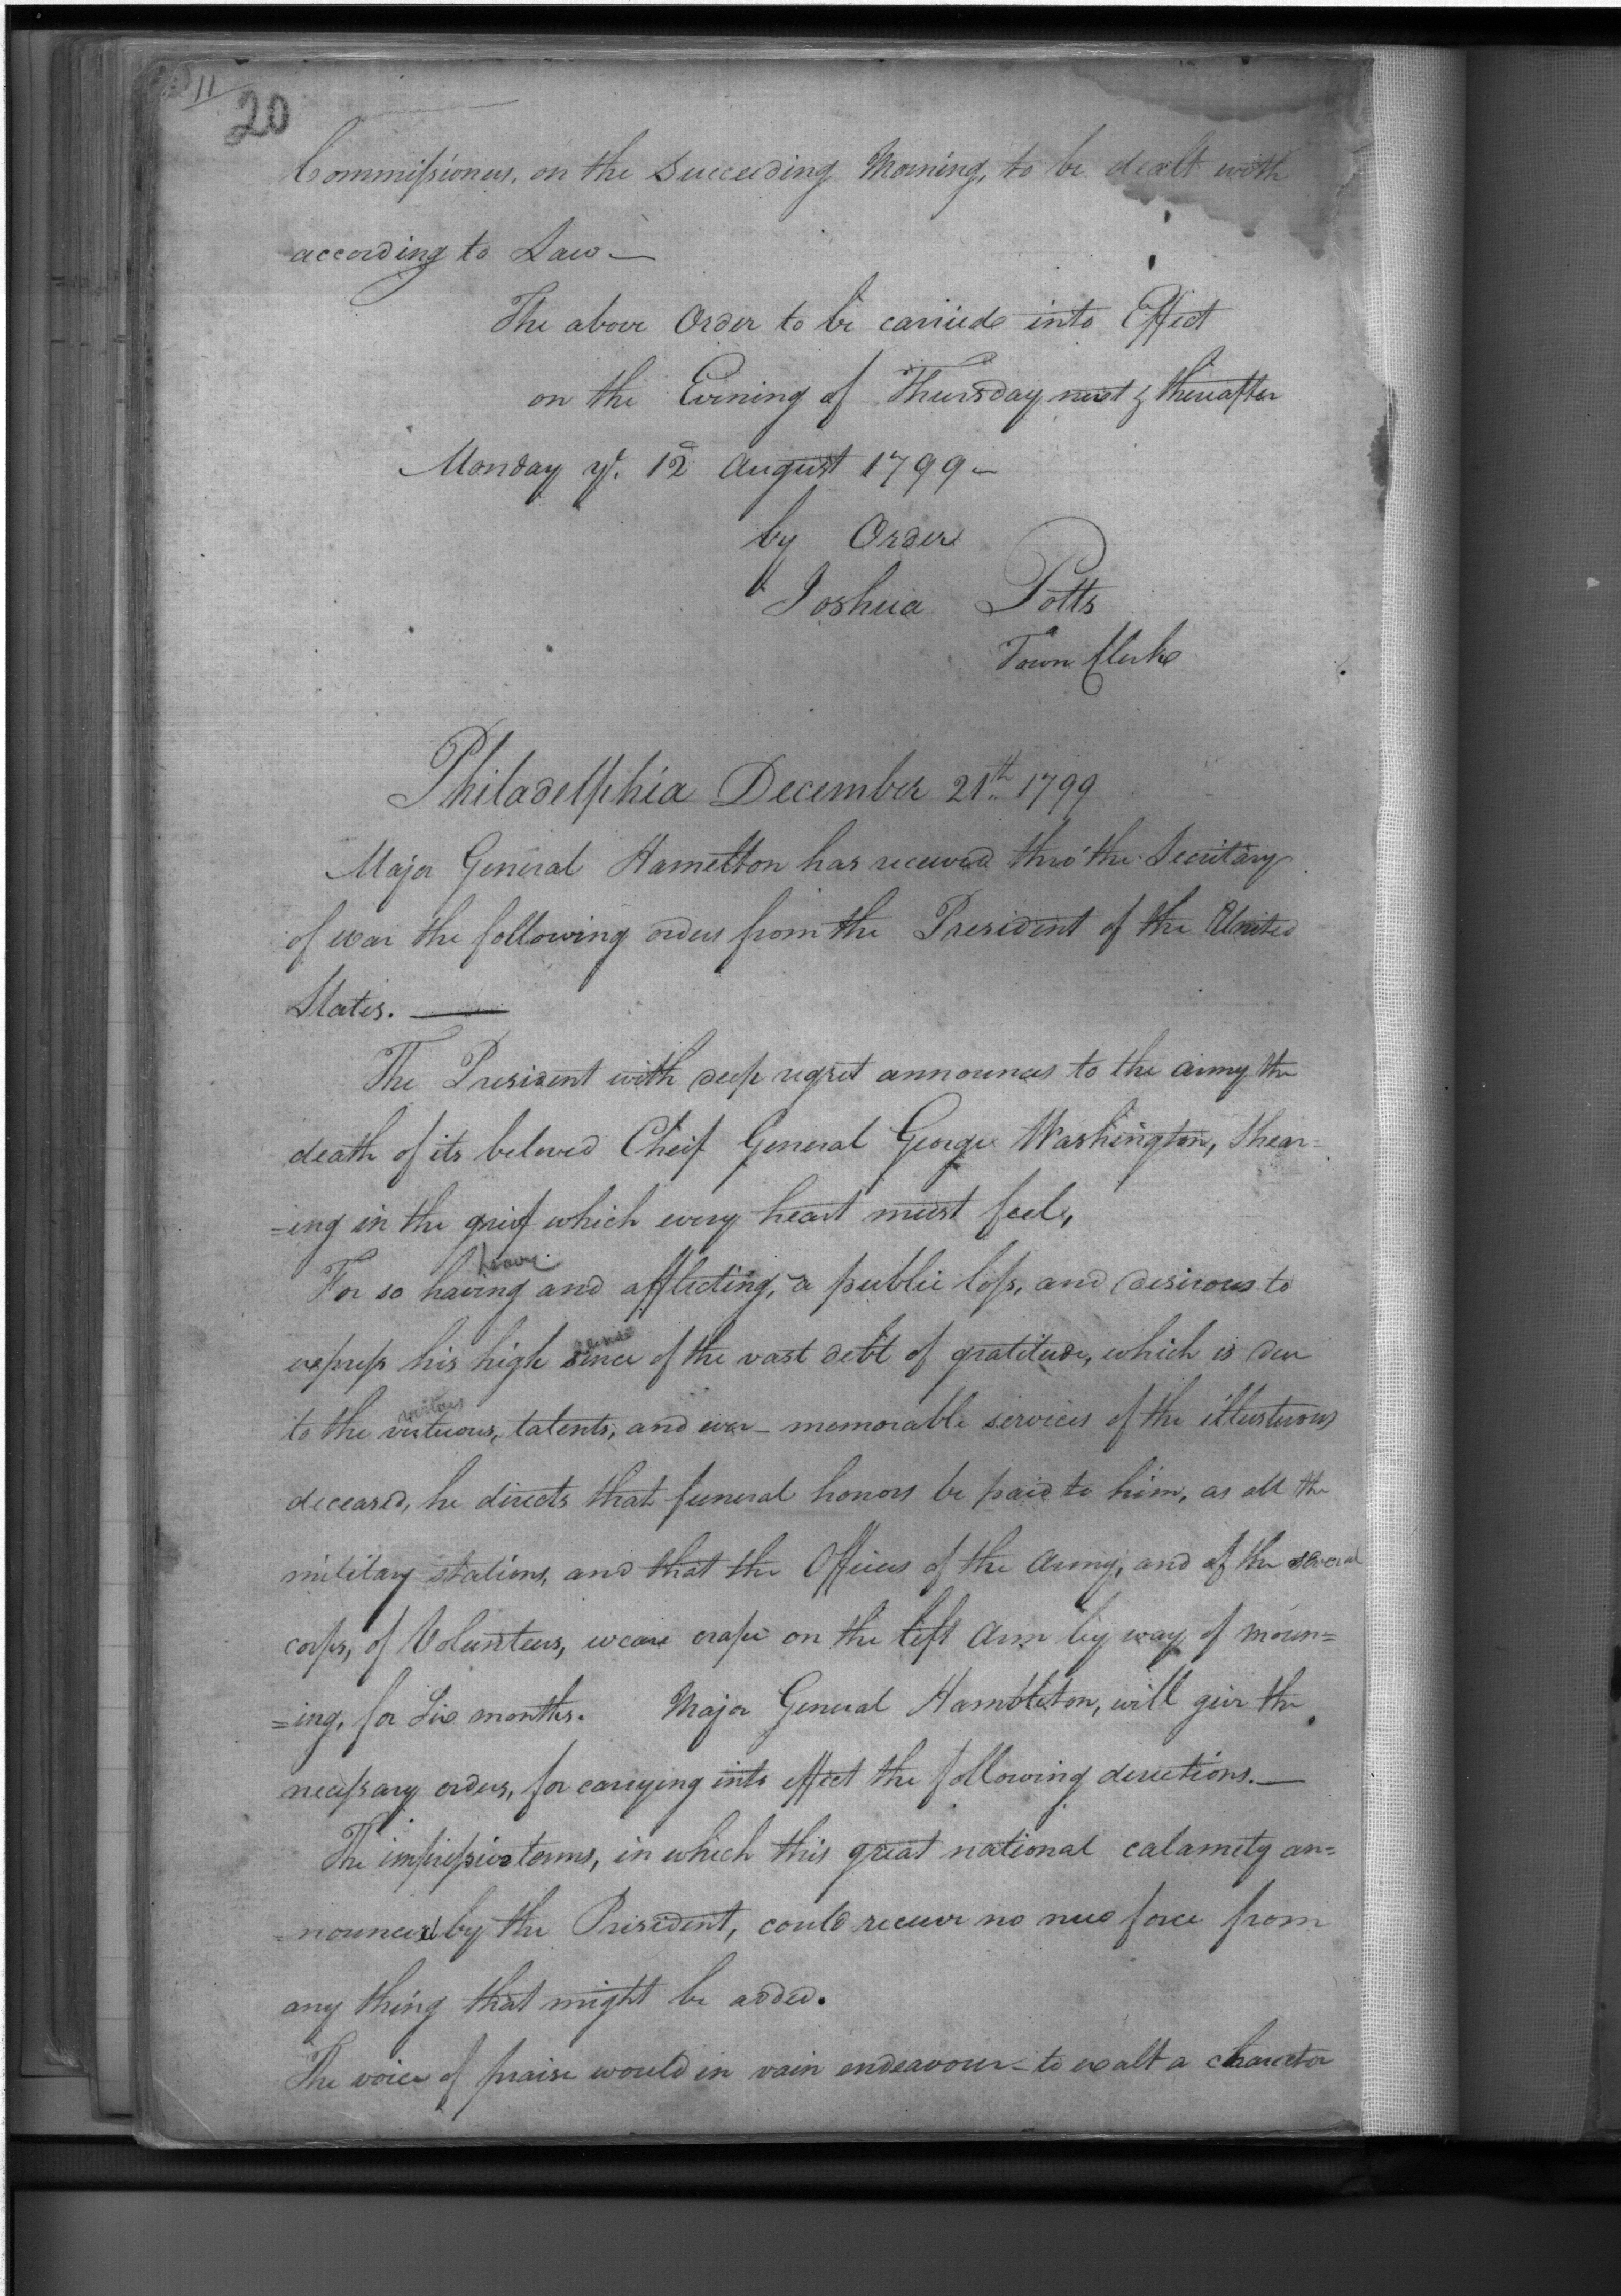 11
20
Commissioners, on the Succeeding Morning, to be dealt with
according to Law —
The above Order to be carried into Effect
on the Evening of Thursday next & thereafter
Monday ye. 12 August 1799 —
by Order
Joshua Potts
Town Clerk
Philadelphia December 21th 1799
Major General Hamelton has received thro' the Secretary
of war the following orders from the President of the United
States. —
The President with deep regret announces to the army the
death of its beloved Cheif General George Washington, Shear=
=ing in the grief which every heart must feel,
heavy
For so having and afflecting, a public loss, and desirous to
sense
express his high sence of the vast debt of gratitude, which is due
virtues
to the virtuous, talents, and ever - memorable services of the illusterous
deceased, he directs that funeral honors be paid to him, as all the
military stations, and that the Officers of the Army, and of the several
corps, of Volunteers, weare crape on the left Arm by way of moun=
=ing, for Six months. Major General Hambleton, will give the
necessary orders, for carrying into effect the following derections. —
The impressive terms, in which this great national calamety an=
=nounced by the President, could receive no new force from
any thing that might be added.
The voice of praise would in vain endeavour - to exalt a character